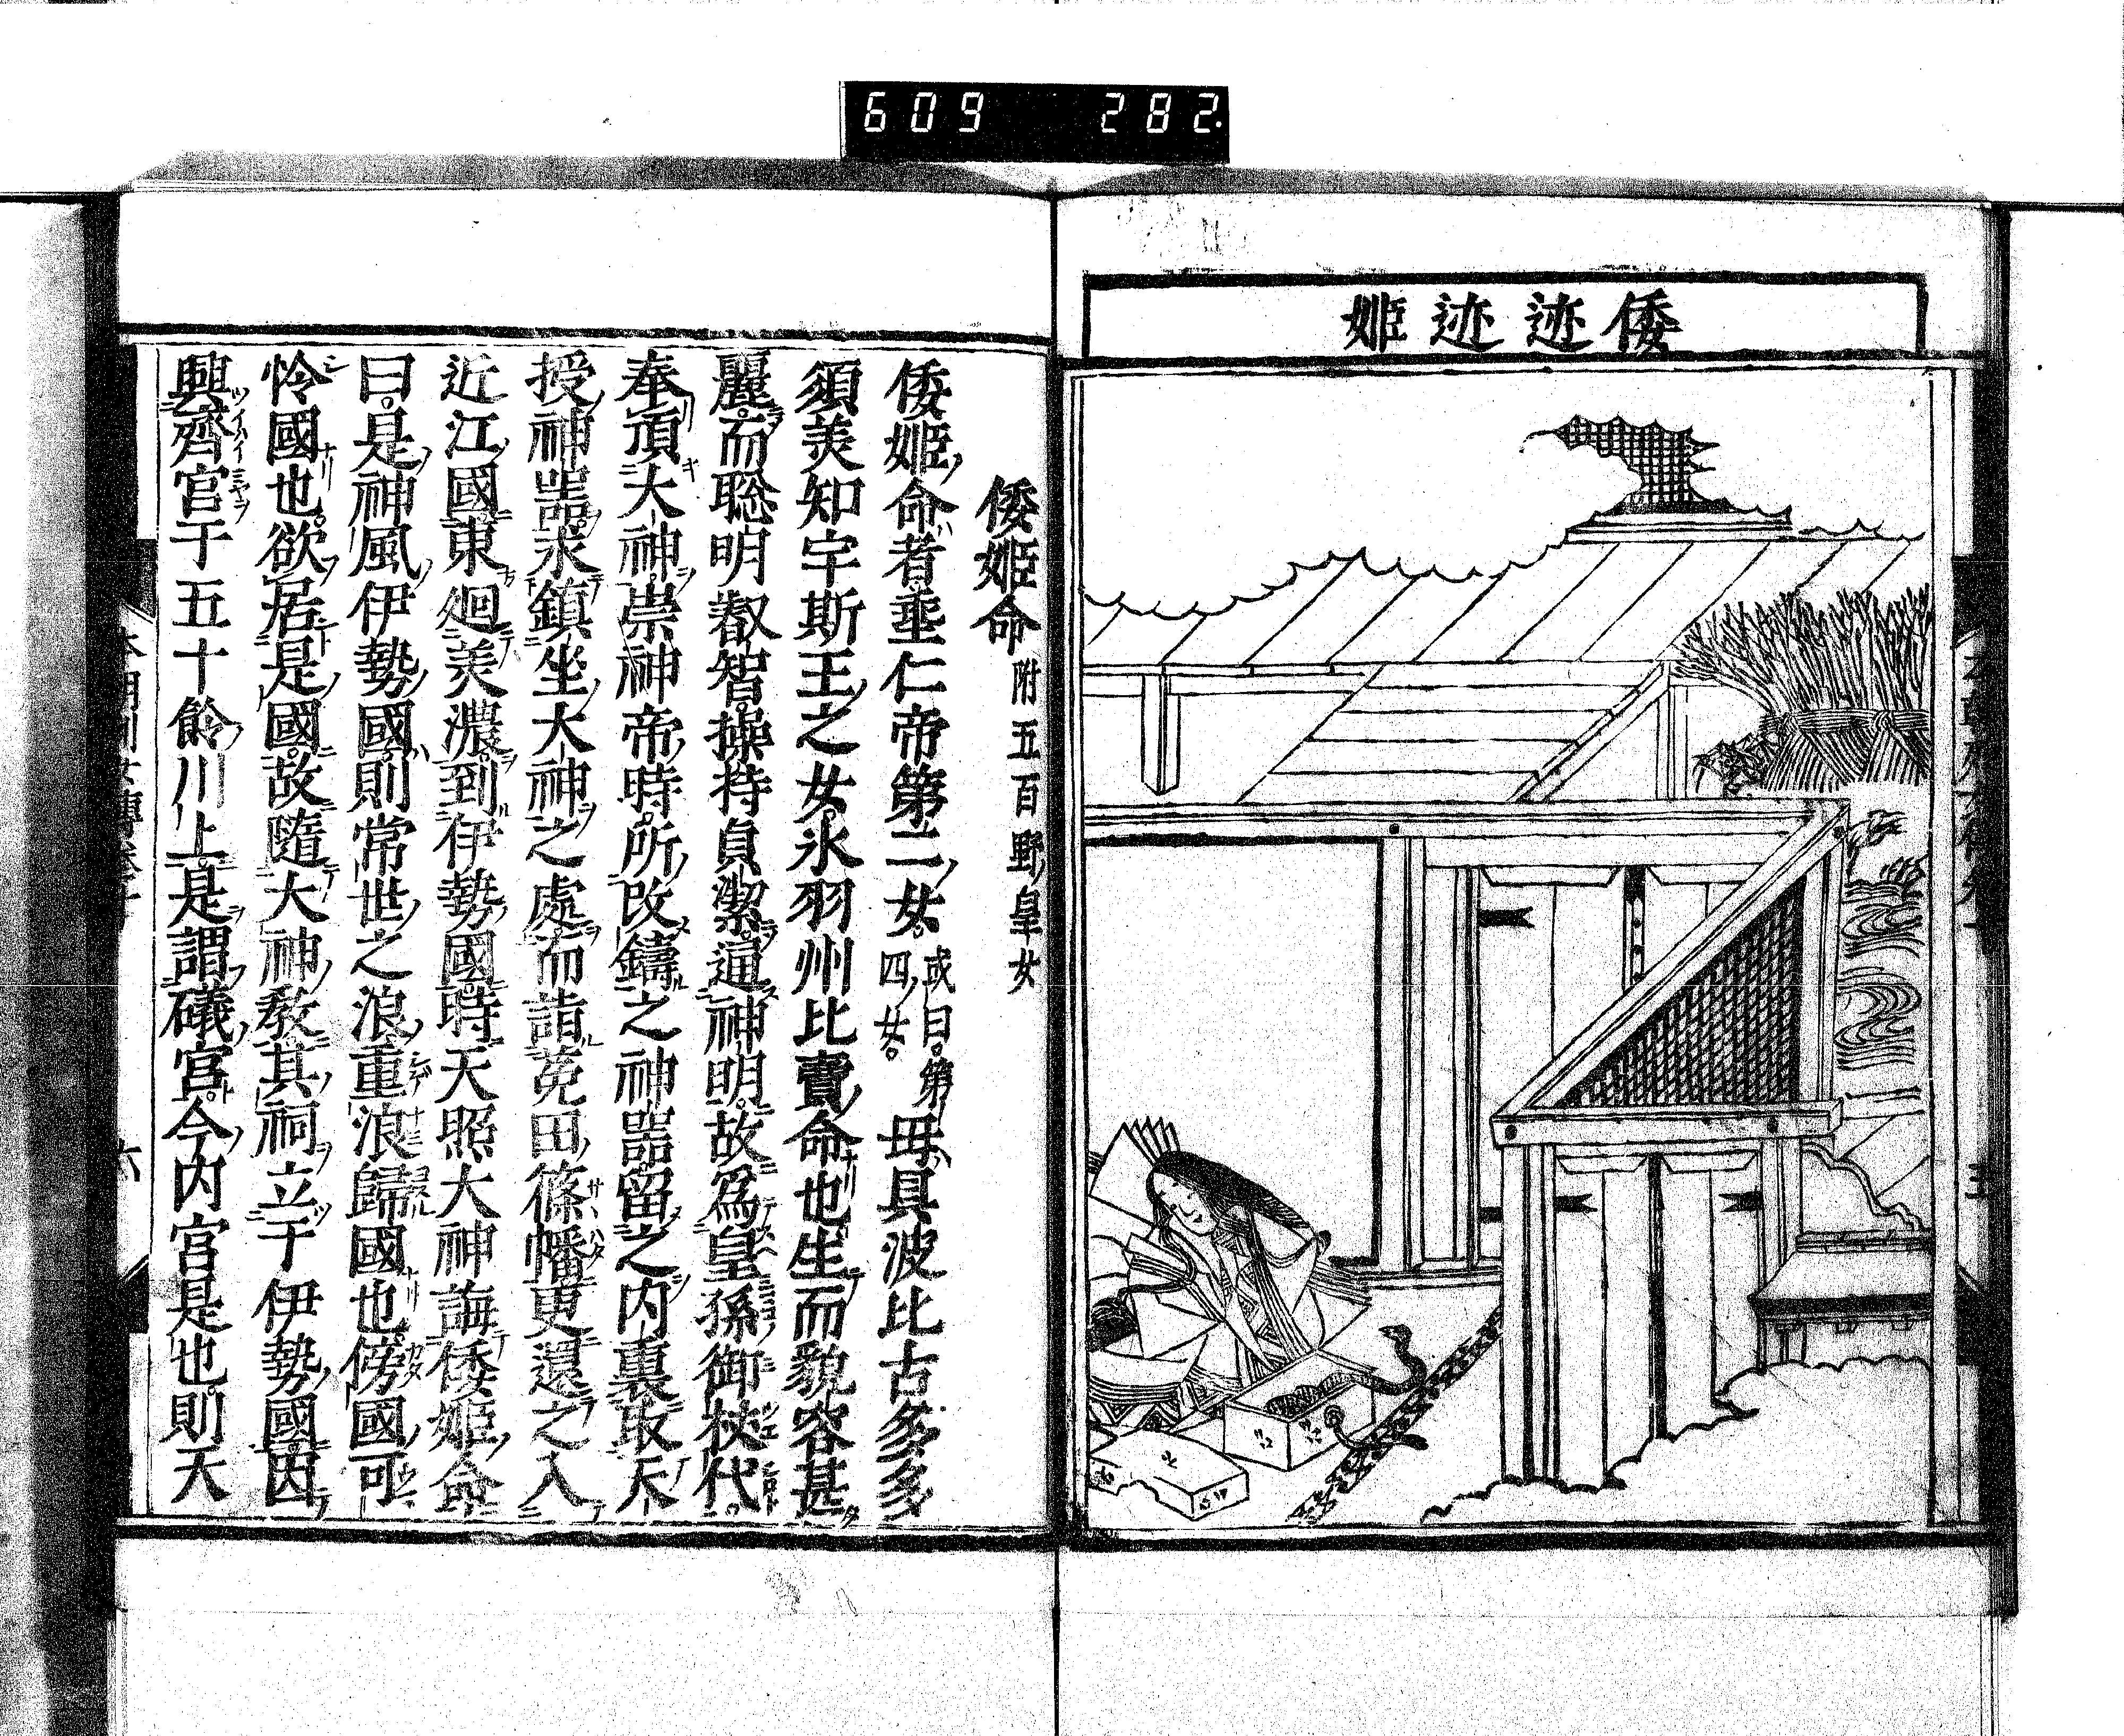 609 282
倭迹迹姫
倭姫命 附五百野皇女
倭姫命者垂仁帝第二女。或曰。第四女。母具波比古多多
須美知宇斯王之女。氷羽州比賣命也生而貌容甚
麗。而聡明叡智。操持貞潔。逼神明。故爲皇孫御杖代。
奉頂大神。崇神帝時。所改鑄之神噐。留之内裏取天
授神噐。求鎮坐大神之處。而詣莵田篠幡更還之入
近江國。東廻美濃。到伊勢國。時天照大神誨倭姫命
曰。是神風伊勢國。則常世之浪。重浪歸國也。傍國可
怜國也。欲居是國。故隨大神教。其祠立于伊勢國。因
興齋宮于五十鈴川上。是謂礒宮。今内宮是也。則天
六